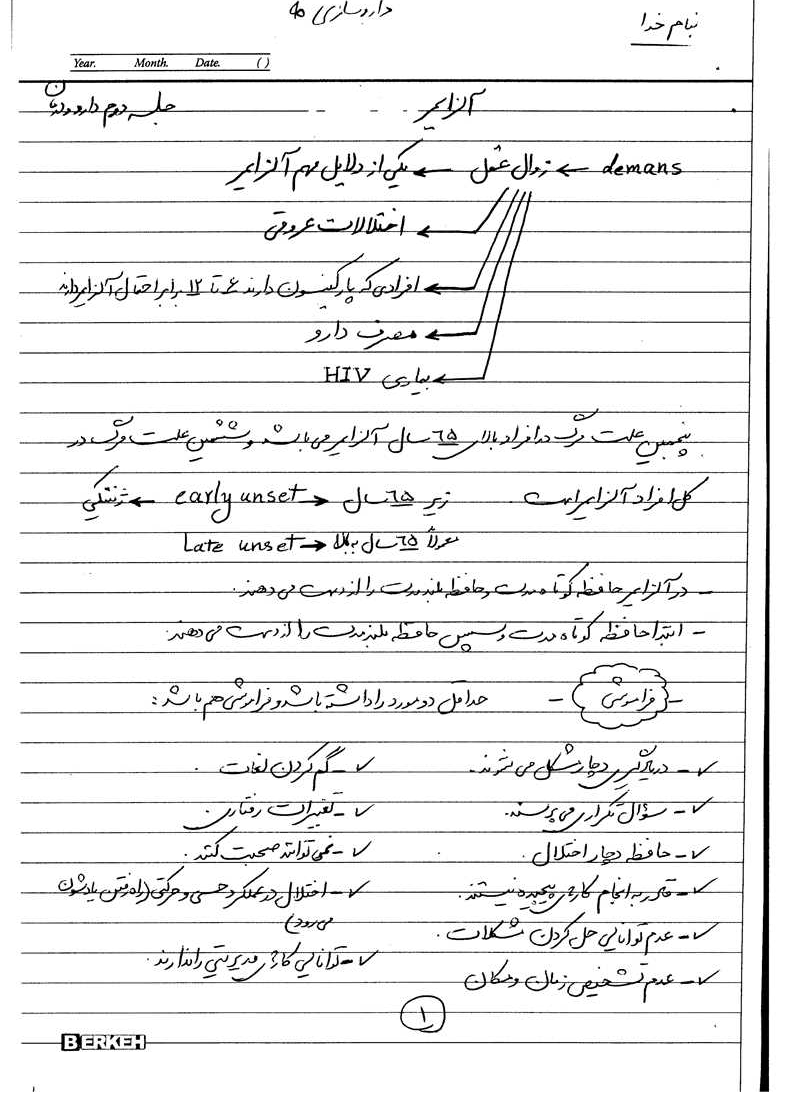 بنام خدا
داروسازی 90
Year. Month. Date. ( )
آلزایمر
جلسه دوم دارو درمان
demans ← زوال عقل ← یکی از دلایل مهم آلزایمر
← اختلالات عروقی
← افرادی که پارکینسون دارند ۶ تا ۱۲ برابر احتمال آلزایمر دارند
← مصرف دارو
← بیماری HIV
پنجمین علت مرگ در افراد بالای ٦٥ سال آلزایمر می باشد و ششمین علت مرگ در
کل افراد آلزایمر است. زیر ٦٥ سال → early unset ← ژنتیکی
معمولاً ٦٥ سال به بالا → Late unset
- در آلزایمر حافظه کوتاه مدت و حافظه بلند مدت را از دست می دهند.
- ابتدا حافظه کوتاه مدت و سپس حافظه بلند مدت را از دست می دهند.
- فراموشی - حداقل دو مورد را داشته باشد و فراموشی هم باشد:
✓- در یادگیری دچار مشکل می شوند. ✓- گم کردن لغات.
✓- سؤال تکراری می پرسند. ✓- تغییرات رفتاری.
✓- حافظه دچار اختلال. ✓- نمی توانند صحبت کنند.
✓- قادر به انجام کارهای پیچیده نیستند. ✓- اختلال در عملکرد حسی و حرکتی (راه رفتن یادشون
می رود)
✓- عدم توانایی حل کردن مشکلات.
✓- توانایی کارهای مدیریتی را ندارند.
✓- عدم تشخیص زمان و مکان
۱
BERKEH